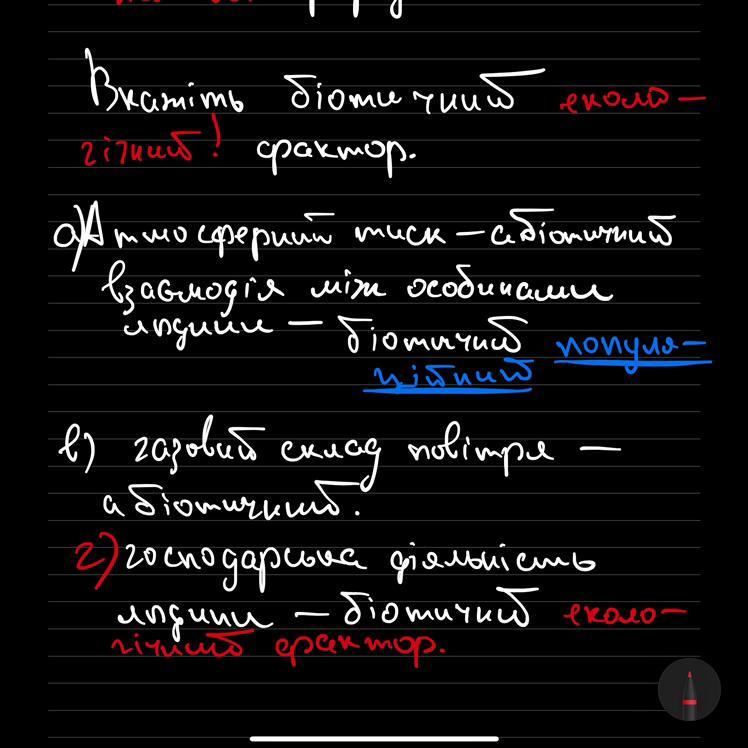 Вкажіть біотичний еколо-
гічний! фактор.
а) Атмосферний тиск – абіотичний
взаємодія між особинами
людини – біотичний популя-
ційний
в) газовий склад повітря –
абіотичний.
г) господарська діяльність
людини – біотичний еколо-
гічний фактор.